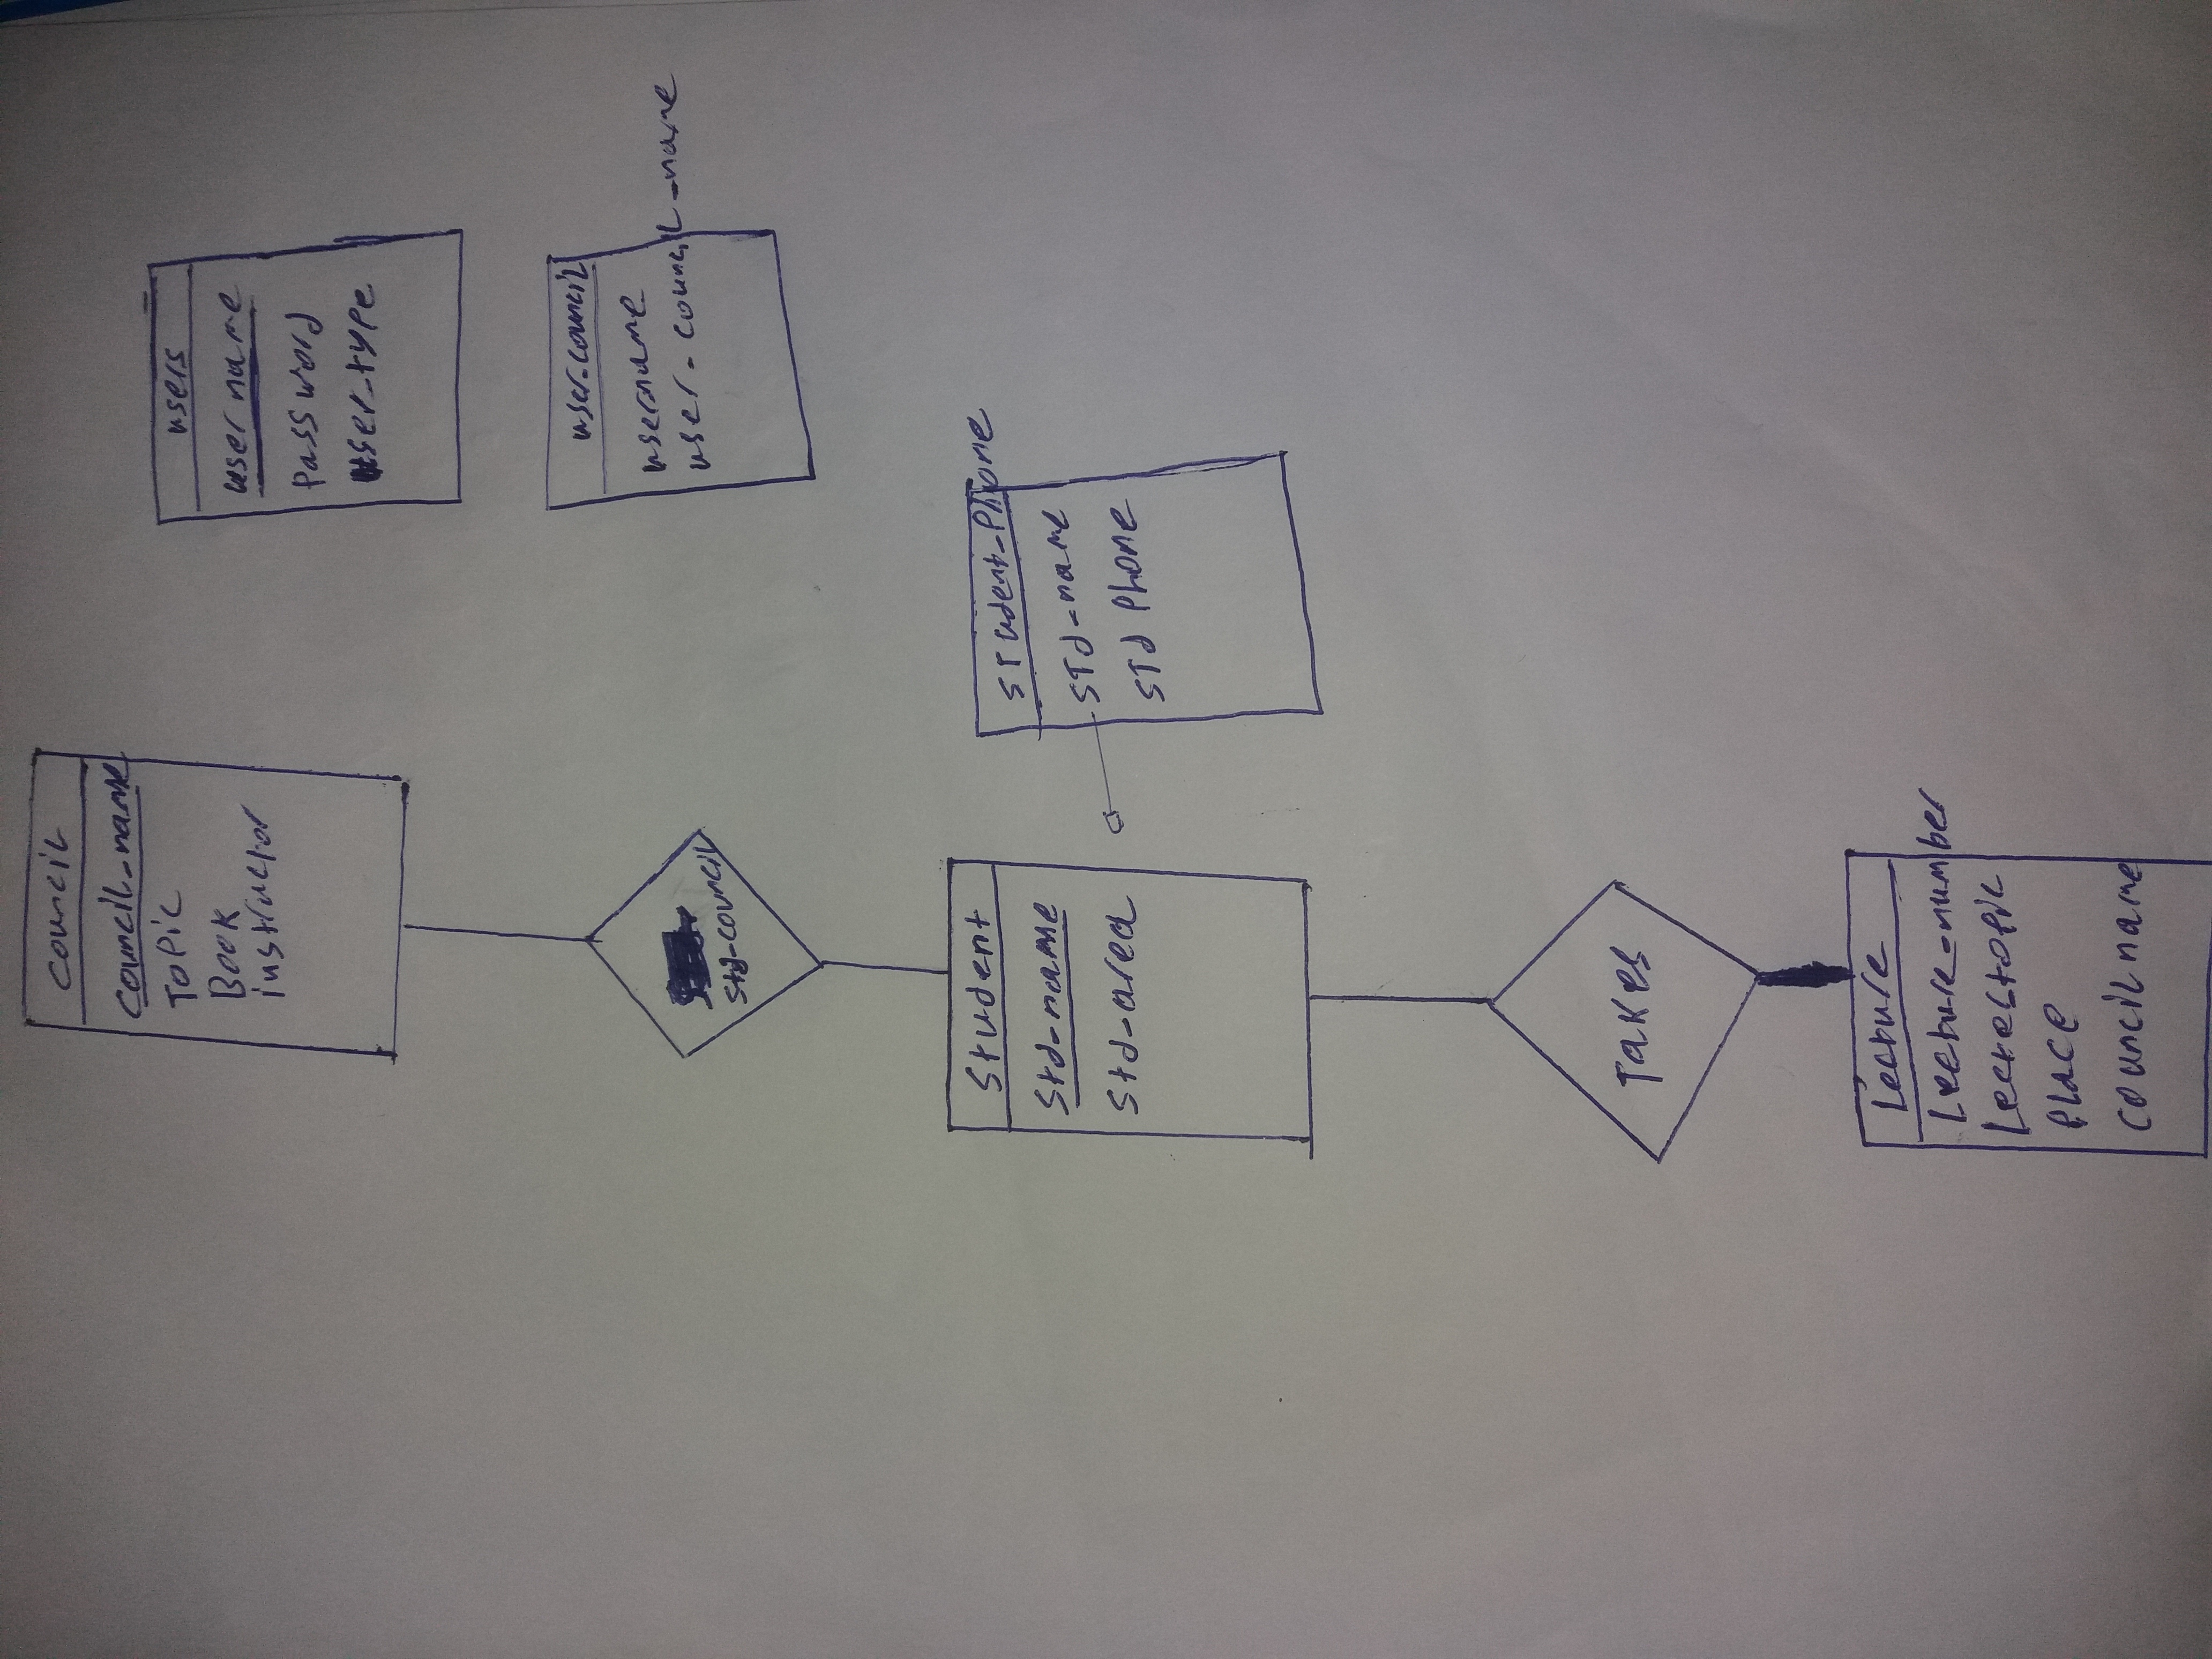 council
council_name
Topic
Book
instructor
users
username
password
user_type
user_council
username
user_council_name
std_council
student
std_name
std_area
student_Phone
std_name
std Phone
Takes
Lecture
Lecture_number
place
council name